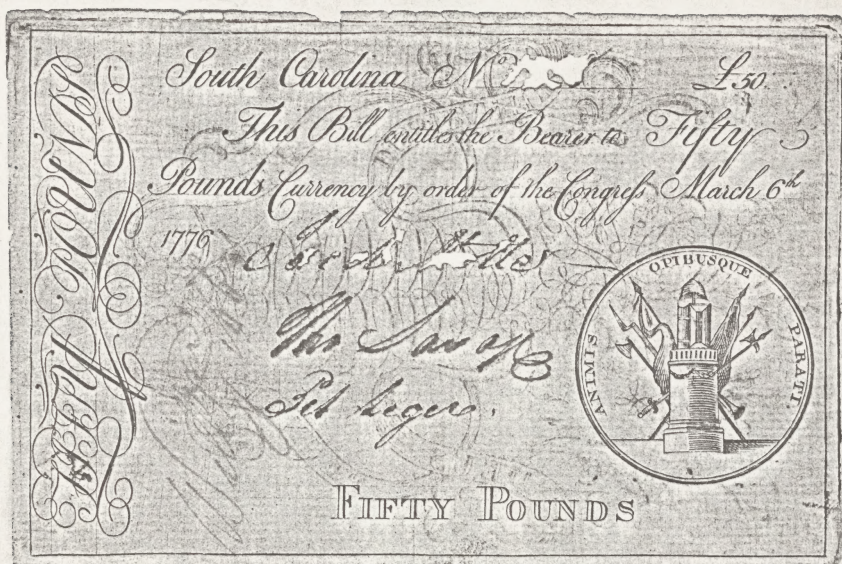 South Carolina No £50.
This Bill entitles the Bearer to Fifty
Pounds Currency by order of the Congress March 6th
1776
Tho Savage
Pet Leger.
OPIBUSQUE
ANIMIS
PARATI.
FIFTY POUNDS